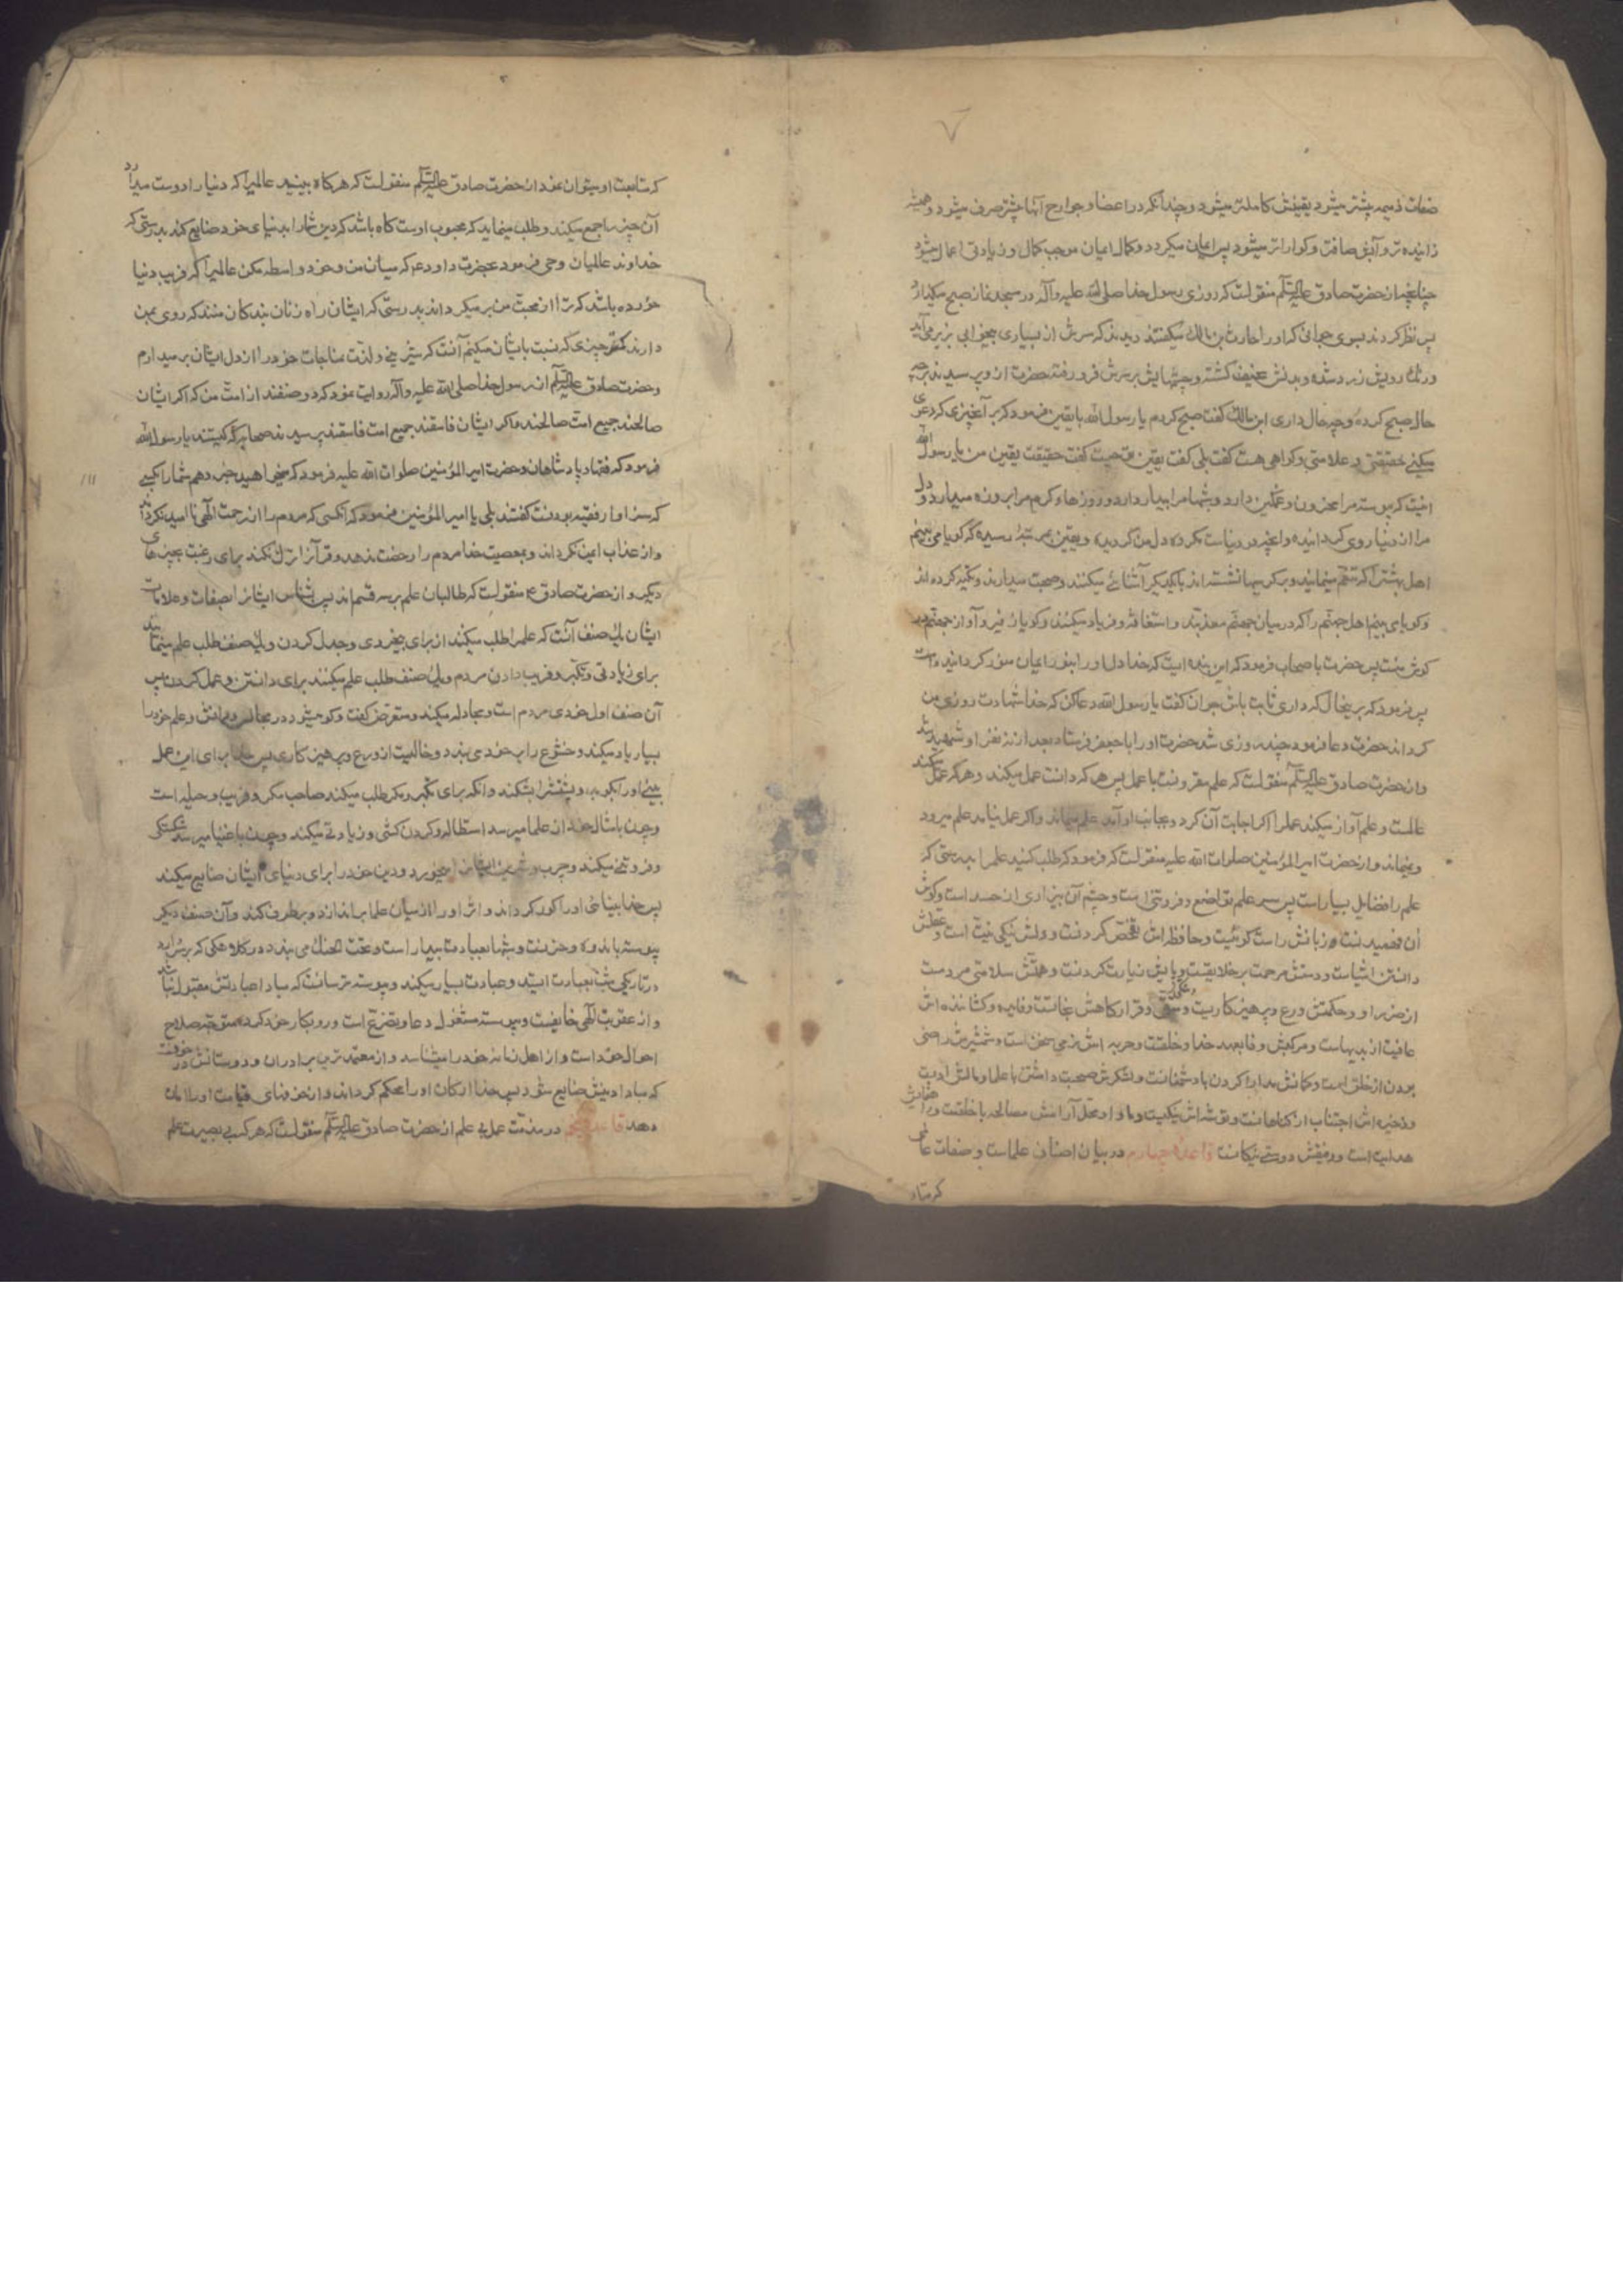 صفات ذمیمه بیشتر میشود یقینش کاملتر میشود و چندانکه در اعضا و جوارح آنها بیشتر صرف میشود و همیشه
زاینده تر و آبش صافتر و کواراتر میشود پس ایمان میکردد و کمال ایمان موجب کمال و زیادتی اعمال میشود
چنانچه از حضرت صادق علیه السلم منقولست که روزی رسول خدا صلی الله علیه و آله در مسجد نماز صبح میکذارد
پس نظر کردند بسوی جوانی که او را حارث بن مالک میکفتند دیدند که سرش از بسیاری بیخوابی بزیر می‌آید
و رنک رویش زرد شده و بدنش نحیف کشته و چشمهایش بر سرش فرو رفته حضرت از وی پرسیدند بر چه
حال صبح کرده و چه حال داری ابن مالک کفت صبح کردم یا رسول الله با یقین فرمود که بر هر چیزی که دعوی
میکنند حقیقتی و علامتی و کواهی هست کفت بلی کفت یقین تو چیست کفت حقیقت یقین من یا رسول الله
اینست که پیوسته مرا محزون و غمکین دارد و شبها مرا بیدار دارد و روزهاء کرم مرا بروزه میدارد و دل
مرا از دنیا روی کردانیده و آنچه در دنیاست مکروه دل من کردیده و یقین بمرتبه رسیده که کویا می بینم
اهل بهشت را که تنعم مینمایند و بر کرسیها نشسته اند با یکدیکر آشنائی میکنند و صحبت میدارند و تکیه کرده اند
و کویا می بینم اهل جهنم را که در میان جهنم معذبند و استغاثه و فریاد میکنند و کویا زفیر و آواز جهنم در
کوش منست پس حضرت باصحاب فرمود که این بنده ایست که خدا دل او را بنور ایمان منور کردانیده است
پس فرمود که بر ینحال که داری ثابت باش جوان کفت یا رسول الله دعا کن که خدا شهادت روزی من
کرداند حضرت دعا فرمود چند روزی شد حضرت او را با جعفر فرستاد بعد از نه نفر او شهید شد
و از حضرت صادق علیه السلم منقولست که علم مقرونست با عمل پس هر که دانست عمل میکند و هر که عمل میکند
عالمست و علم آواز میکند عمل را اکر اجابت آن کرد و بجانب او آمد علم میماند و اکر عمل نیامد علم میرود
و نمیماند و از حضرت امیر المؤمنین صلوات الله علیه منقولست که فرمود که طلب کنید علم را بدرستی که
علم را فضایل بسیار است پس سر علم تواضع و فروتنی است و چشم آن بیزاری از حسد است و کوش
آن فهمیدنست و زبانش راست کوئیست و حافظه اش تفحص کردنست و دلش نیکی نیت است و عقلش
دانستن اشیاست و دستش مرحمت بر خلایقست و پایش زیارت کردنست و همتش سلامتی مردمست
از ضرر او و حکمتش ورع و پرهیز کاریست و قرارکاهش نجاتست و قایده و کشاننده اش
عافیت از بدیهاست و مرکبش وفا بعهد خدا و خلقست و حربه اش نرمی سخن است و شمشیرش راضی
بودن از خلق است و کمانش مدارا کردن با دشمنانست و لشکرش صحبت داشتن با علما و مالش ادبست
و ذخیره اش اجتناب از کناهانست و توشه اش نیکیست و ماوا و محل آرامش مصالحه با خلقست و راهنمایش
هدایت است و رفیقش دوستی نیکانست قاعده چهارم در بیان اصناف علماست و صفات عالمی
که متا
که متابعت او میتوان نمود از حضرت صادق علیه السلم منقولست که هر کاه ببینید عالمی را که دنیا را دوست میدارد
آن چیز را جمع میکند و طلب مینماید که محبوب اوست کاه باشد که دین شما را بدنیای خود ضایع کند بدرستی که
خداوند عالمیان وحی فرمود بحضرت داود ع که میان من و خود واسطه مکن عالمی را که فریب دنیا
خورده باشد که ترا از محبت من بر میکرداند بدرستی که ایشان راه زنان بندکان منند که روی بمن
دارند کمتر چیزی که نسبت بایشان میکنم آنست که شیرینی و لذت مناجات خود را از دل ایشان بر میدارم
و حضرت صادق علیه السلم از رسول خدا صلی الله علیه و آله روایت نمود که دو صنفند از امت من که اکر ایشان
صالحند جمیع امت صالحند و اکر ایشان فاسقند جمیع امت فاسقند پرسیدند صحابه که کیستند یا رسول الله
فرمود که فقها و پادشاهان و حضرت امیر المؤمنین صلوات الله علیه فرمود که میخواهید خبر دهم شما را بکسی
که سزاوار فقیه بودنست کفتند بلی یا امیر المؤمنین فرمود که آنکسی که مردم را از رحمت الهی نا امید نکرداند
و از عذاب ایمن نکرداند و بمعصیت خدا مردم را رخصت ندهد و قرآن را ترک نکند برای رغبت بچیزهای
دیکر و از حضرت صادق ع منقولست که طالبان علم بر سه قسم اند پس بشناس ایشان را بصفات و علامات
ایشان یک صنف آنست که علم را طلب میکنند از برای بیخردی و جدل کردن و یک صنف طلب علم مینمایند
برای زیادتی و تکبر و فریب دادن مردم و یک صنف طلب علم میکنند برای دانستن و عمل کردن پس
آن صنف اول موذی مردم است و مجادله میکند و متعرض کفت و کو میشود در مجالس و دانش و علم خود را
بسیار یاد میکند و خشوع را بر خود می بندد و خالیست از ورع و پرهیز کاری پس خدا برای این عمل
بینی او را بکوبد و پشتش را بشکند و آنکه برای تکبر و مکر طلب میکند صاحب مکر و فریب و حیله است
و چون بامثال خود از علما میرسد استطاله و کردن کشی و زیادتی میکند و چون باغنیا میرسد شکستکی
و فروتنی میکند و چرب و شیرین ایشان را میخورد و دین خود را برای دنیای ایشان ضایع میکند
پس خدا بینائی او را کور کرداند و اثر او را از میان علما براندازد و بر طرف کند و آن صنف دیکر
پیوسته با اندوه و حزنست و شبها بعبادت بیدار است و تحت الحنک می بندد در کلاهی که بر سر دارد
در تاریکی شب بعبادت ایستد و عبادت بسیار میکند و پیوسته ترسانست که مبادا عبادتش مقبول نباشد
و از عقوبت الهی خایفست و پیوسته مشغول دعا و تضرع است و رو بکار خود کرده متوجه صلاح
احوال خود است و از اهل زمانه خود را میشناسد و از معتمد ترین برادران و دوستانش در خوفست
که مبادا دینش ضایع شود پس خدا ارکان او را محکم کرداند و از خوفهای قیامت او را امان
دهد قاعده پنجم در مذمت عمل بی علم از حضرت صادق علیه السلم منقولست که هر که بی بصیرت علم